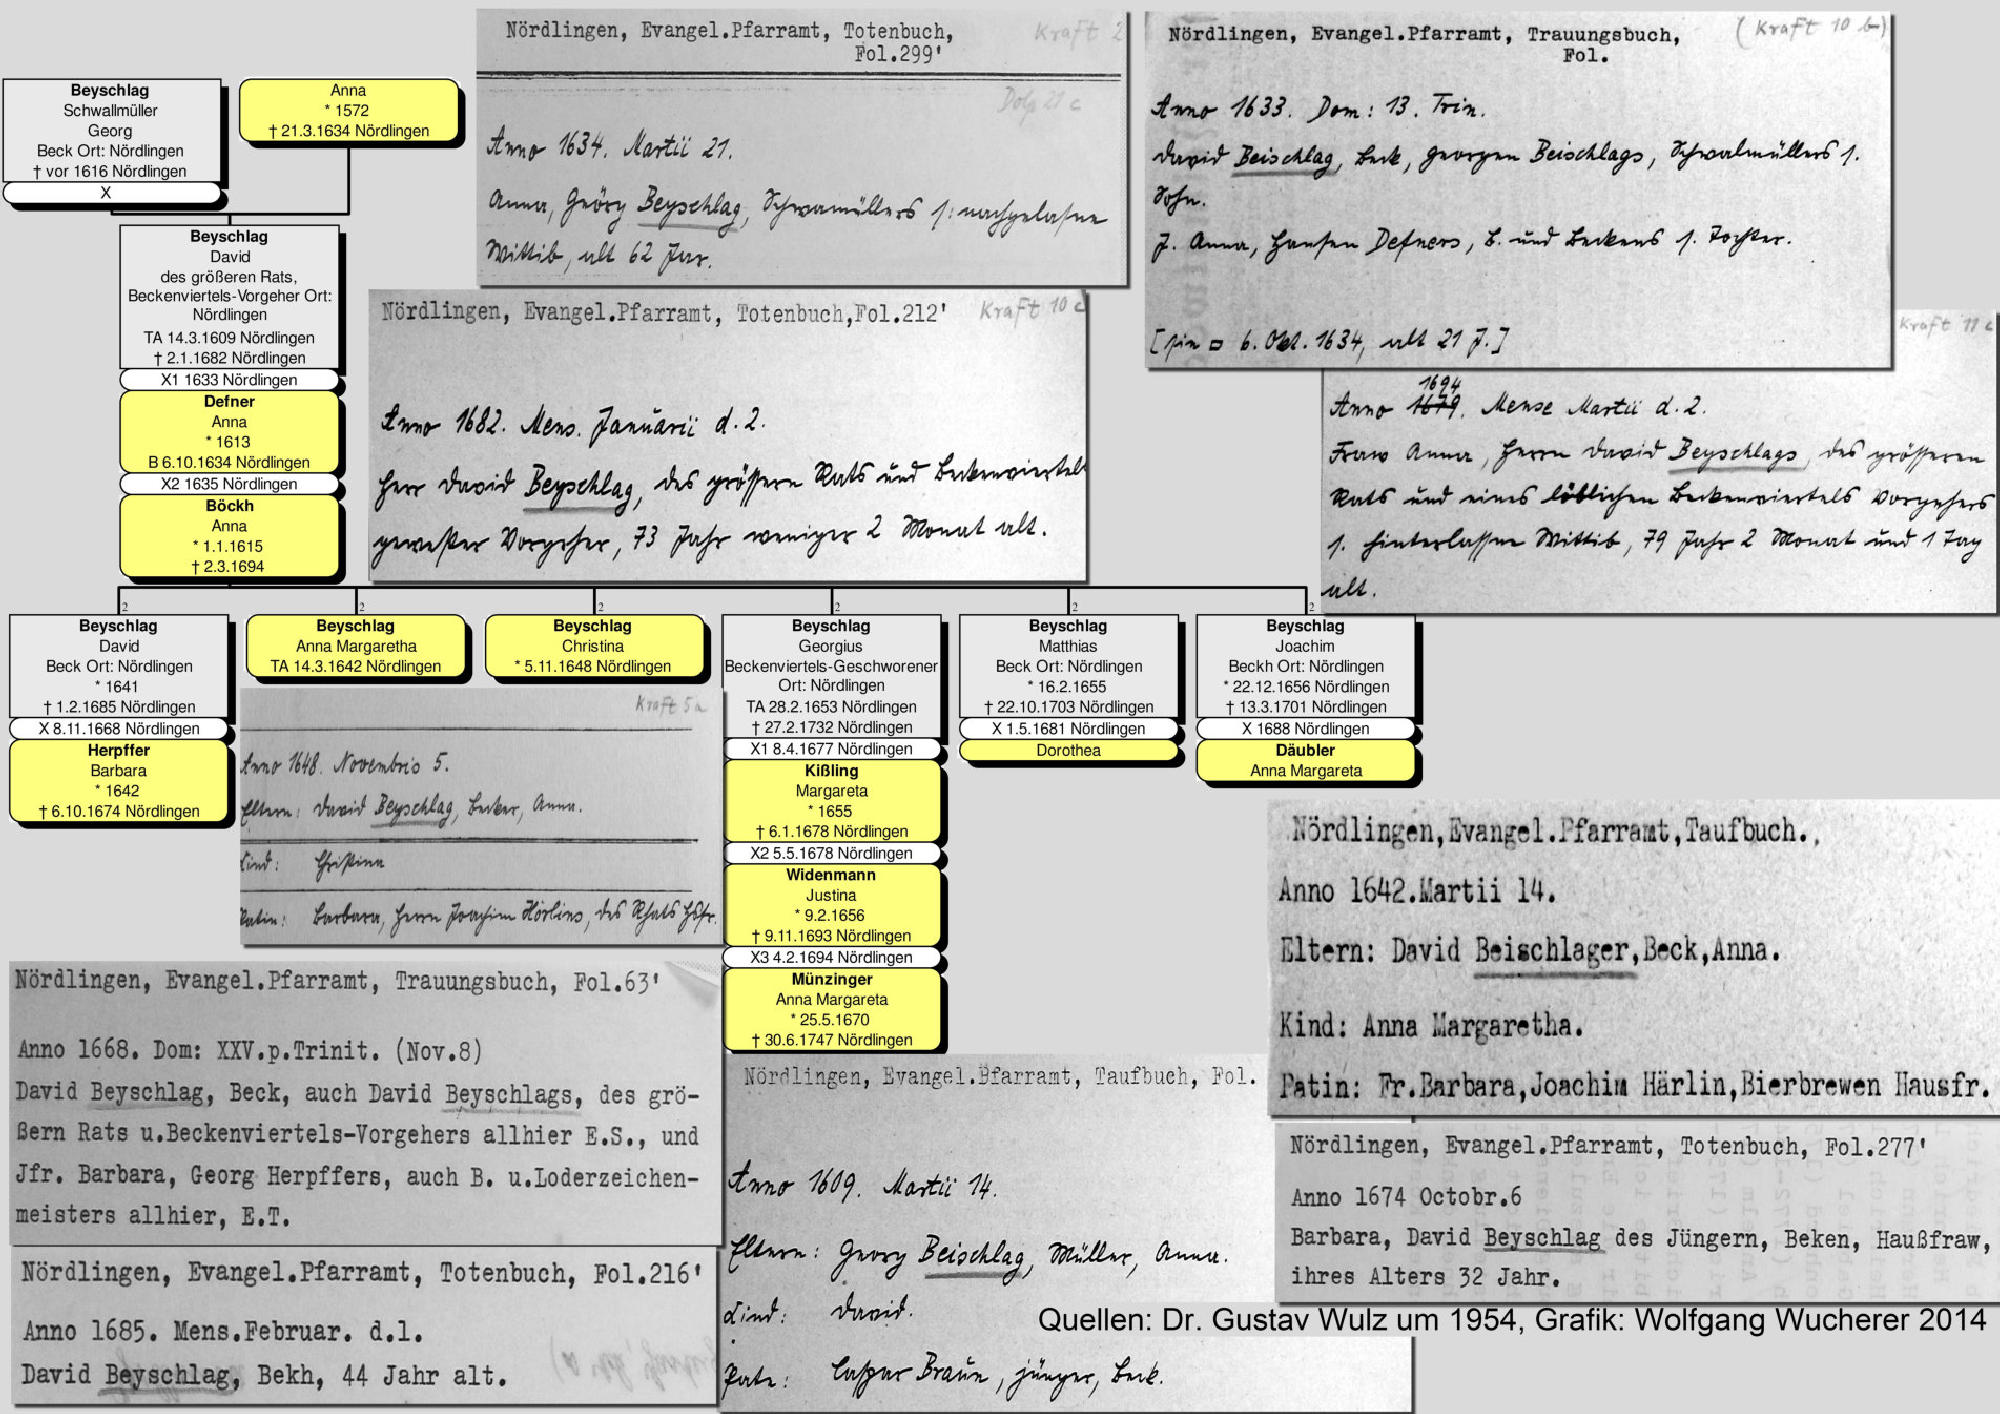 Beyschlag
Schwallmüller
Georg
Beck Ort: Nördlingen
† vor 1616 Nördlingen
X
Anna
* 1572
† 21.3.1634 Nördlingen
Beyschlag
David
des größeren Rats,
Beckenviertels-Vorgeher Ort:
Nördlingen
TA 14.3.1609 Nördlingen
† 2.1.1682 Nördlingen
X1 1633 Nördlingen
Defner
Anna
* 1613
B 6.10.1634 Nördlingen
X2 1635 Nördlingen
Böckh
Anna
* 1.1.1615
† 2.3.1694
Nördlingen, Evangel.Pfarramt, Totenbuch,
Fol.299'
Kraft 2
Anno 1634. Martii 21.
Anna, Geörg Beyschlag, Schwamüllers s: nachgelasne
Wittib, alt 62 Jar.
Nördlingen, Evangel.Pfarramt, Trauungsbuch,
Fol.
(Kraft 10 b)
Anno 1633. Dom: 13. Trin.
David Beischlag, Beck, Georgen Beischlags, Schwalmüllers s.
Sohn.
J. Anna, Hansen Defners, B. und Beckens s. Tochter.
6. Okt. 1634, alt 21 J.]
Nördlingen, Evangel.Pfarramt, Totenbuch,Fol.212'
Kraft 10 c
Anno 1682. Mens. Januarii d. 2.
Herr David Beyschlag, des grössern Rats und Beckenviertels
gewester Vorgeher, 73 Jahr weniger 2 Monat alt.
Kraft 11 c
1694
Anno 1679. Mense Martii d. 2.
Fraw Anna, Herrn David Beyschlags, des grösseren
Rats und eines löblichen Beckenviertels Vorgehers
s. hinterlassne Wittib, 79 Jahr 2 Monat und 1 Tag
alt.
2
2
2
2
2
2
Beyschlag
David
Beck Ort: Nördlingen
* 1641
† 1.2.1685 Nördlingen
X 8.11.1668 Nördlingen
Herpffer
Barbara
* 1642
† 6.10.1674 Nördlingen
Beyschlag
Anna Margaretha
TA 14.3.1642 Nördlingen
Beyschlag
Christina
* 5.11.1648 Nördlingen
Beyschlag
Georgius
Beckenviertels-Geschworener
Ort: Nördlingen
TA 28.2.1653 Nördlingen
† 27.2.1732 Nördlingen
X1 8.4.1677 Nördlingen
Kißling
Margareta
* 1655
† 6.1.1678 Nördlingen
X2 5.5.1678 Nördlingen
Widenmann
Justina
* 9.2.1656
† 9.11.1693 Nördlingen
X3 4.2.1694 Nördlingen
Münzinger
Anna Margareta
* 25.5.1670
† 30.6.1747 Nördlingen
Beyschlag
Matthias
Beck Ort: Nördlingen
* 16.2.1655
† 22.10.1703 Nördlingen
X 1.5.1681 Nördlingen
Dorothea
Beyschlag
Joachim
Beckh Ort: Nördlingen
* 22.12.1656 Nördlingen
† 13.3.1701 Nördlingen
X 1688 Nördlingen
Däubler
Anna Margareta
Kraft 5a
Anno 1648. Novembris 5.
Eltern: David Beyschlag, Becker, Anna.
Kind: Christina
Patin: Barbara, Herrn Joachim Hörlins, des Rhats Hsfr.
Nördlingen,Evangel.Pfarramt,Taufbuch.,
Anno 1642.Martii 14.
Eltern: David Beischlager,Beck,Anna.
Kind: Anna Margaretha.
Patin: Fr.Barbara,Joachim Härlin,Bierbrewen Hausfr.
Nördlingen, Evangel.Pfarramt, Trauungsbuch, Fol.63'
Anno 1668. Dom: XXV.p.Trinit. (Nov.8)
David Beyschlag, Beck, auch David Beyschlags, des grö-
ßern Rats u.Beckenviertels-Vorgehers allhier E.S., und
Jfr. Barbara, Georg Herpffers, auch B. u.Loderzeichen-
meisters allhier, E.T.
Nördlingen, Evangel.Pfarramt, Totenbuch, Fol.216'
Anno 1685. Mens.Februar. d.1.
David Beyschlag, Bekh, 44 Jahr alt.
Nördlingen, Evangel.Pfarramt, Taufbuch, Fol.
Anno 1609. Martii 14.
Eltern: Georg Beischlag, Müller, Anna.
Kind: David.
Pate: Caspar Braun, jünger, Beck.
Nördlingen, Evangel.Pfarramt, Totenbuch, Fol.277'
Anno 1674 Octobr.6
Barbara, David Beyschlag des Jüngern, Beken, Haußfraw,
ihres Alters 32 Jahr.
Quellen: Dr. Gustav Wulz um 1954, Grafik: Wolfgang Wucherer 2014